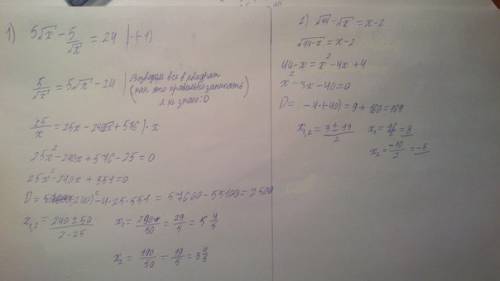 1) 5√x − 5/√x = 24 | ·(−1)
5/√x = 5√x − 24 | Возводим все в квадрат
(как это правильно записать
я не знаю :D
25/x = 25x − 240√x + 576 | · x
25x² − 240x + 576 − 25 = 0
25x² − 240x + 551 = 0
D = (240)² − 4·25·551 = 57600 − 55100 = 2500
x₁,₂ = 240 ± 50 / 2·25   x₁ = 290 / 50 = 29/5 = 5 4/5
x₂ = 190/50 = 19/5 = 3 4/5
2) √44 − √x = x − 2
√44−x = x − 2
44 − x = x² − 4x + 4
x² − 3x − 40 = 0
D = −4·(−40) = 9 + 160 = 169
x₁,₂ = 3 ± 13 / 2   x₁ = 16/2 = 8
x₂ = −10/2 = −5